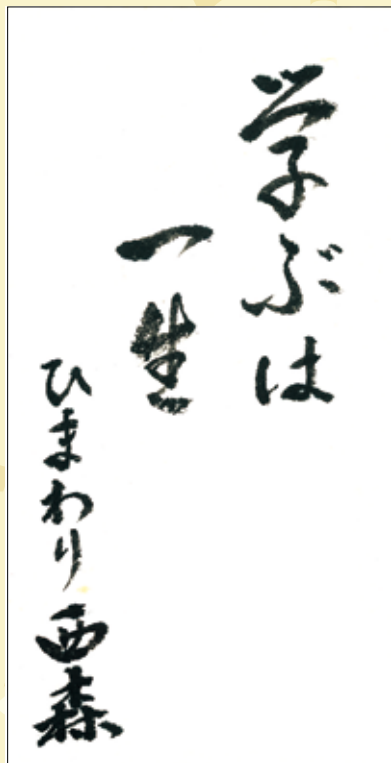 学ぶは
一生
ひまわり 西森